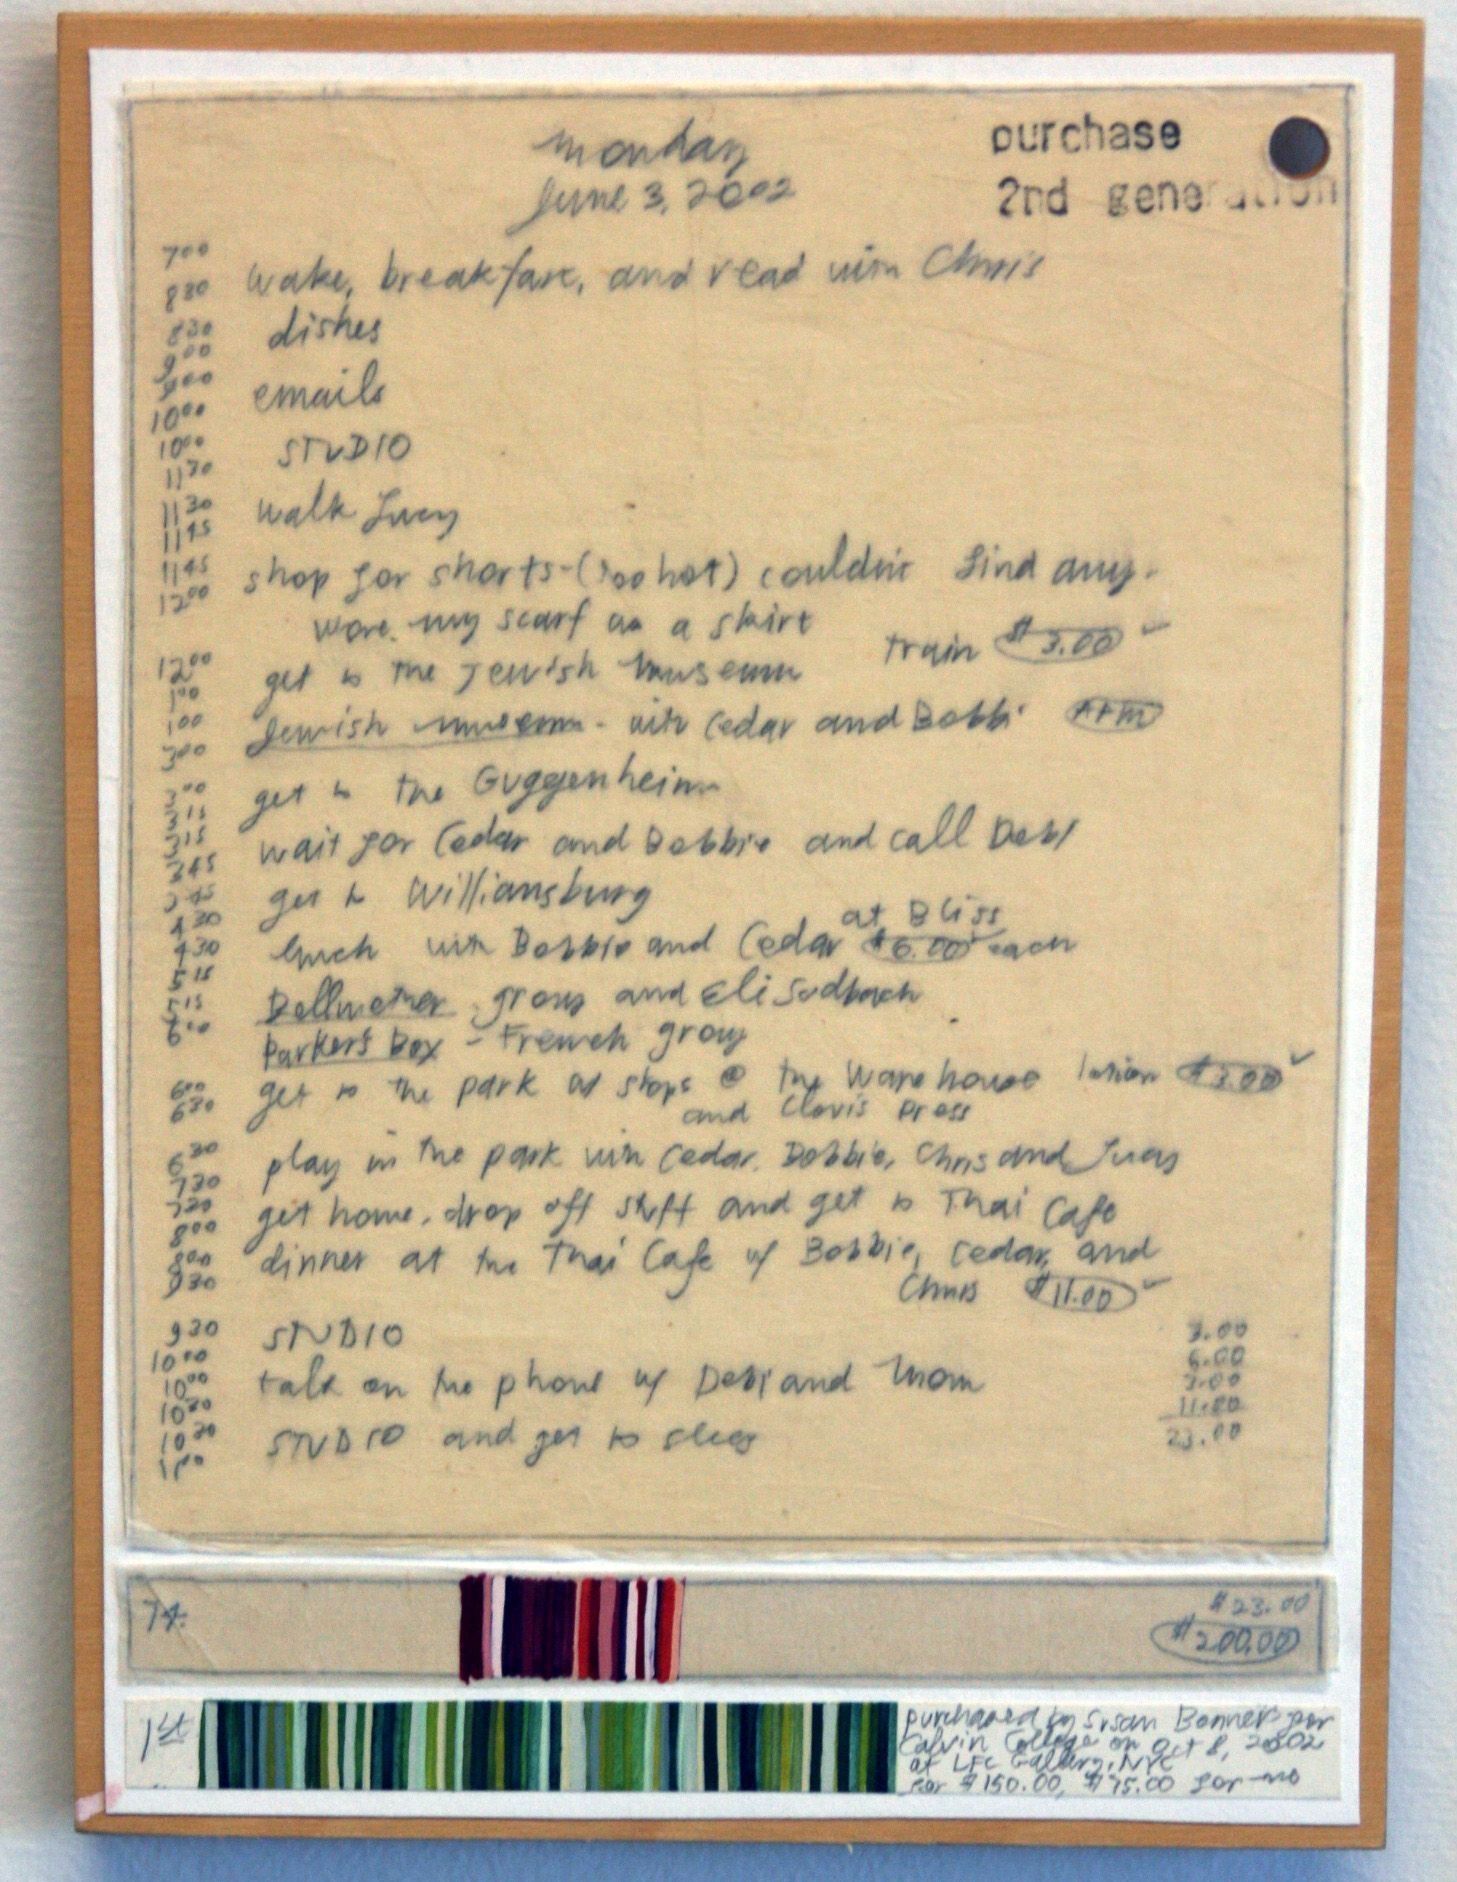 monday
June 3, 2002
purchase
2nd generation
7 00
8 30 wake, breakfast, and read with Chris
8 30 dishes
9 00
9 00 emails
10 00
10 00 STUDIO
11 30
11 30 walk Lucy
11 45
11 45 shop for shorts - (too hot) couldn't find any.
12 00 wore my scarf as a skirt
train $3.00 ✓
12 00 get to the Jewish museum
1 00
1 00 Jewish museum - with Cedar and Bobbi ATM
3 00
3 00 get to the Guggenheim
3 15
3 15 wait for Cedar and Bobbie and call Debi
3 45
3 45 get to Williamsburg
4 30 at Bliss
4 30 lunch with Bobbie and Cedar $6.00 each
5 15
5 15 Bellwether group and Eli Sudbrack
6 00 Parker's Box - French group
6 00 get to the park w/ stops @ the Warehouse lotion $3.00 ✓
6 30 and Clovis Press
6 30 play in the park with Cedar, Bobbie, Chris and Lucy
7 30
7 30 get home, drop off stuff and get to Thai Cafe
8 00
8 00 dinner at the Thai Cafe w/ Bobbie, Cedar, and
9 30 Chris $11.00 ✓
9 30 STUDIO
10 00
10 00 talk on the phone w/ Debi and mom
10 30
10 30 STUDIO and get to sleep
3.00
6.00
3.00
11.00
23.00
74.
$23.00
$200.00
1st
purchased by Susan Bonner for
Calvin College on Oct 8, 2002
at LFL Gallery, NYC
for $150.00, $75.00 for me